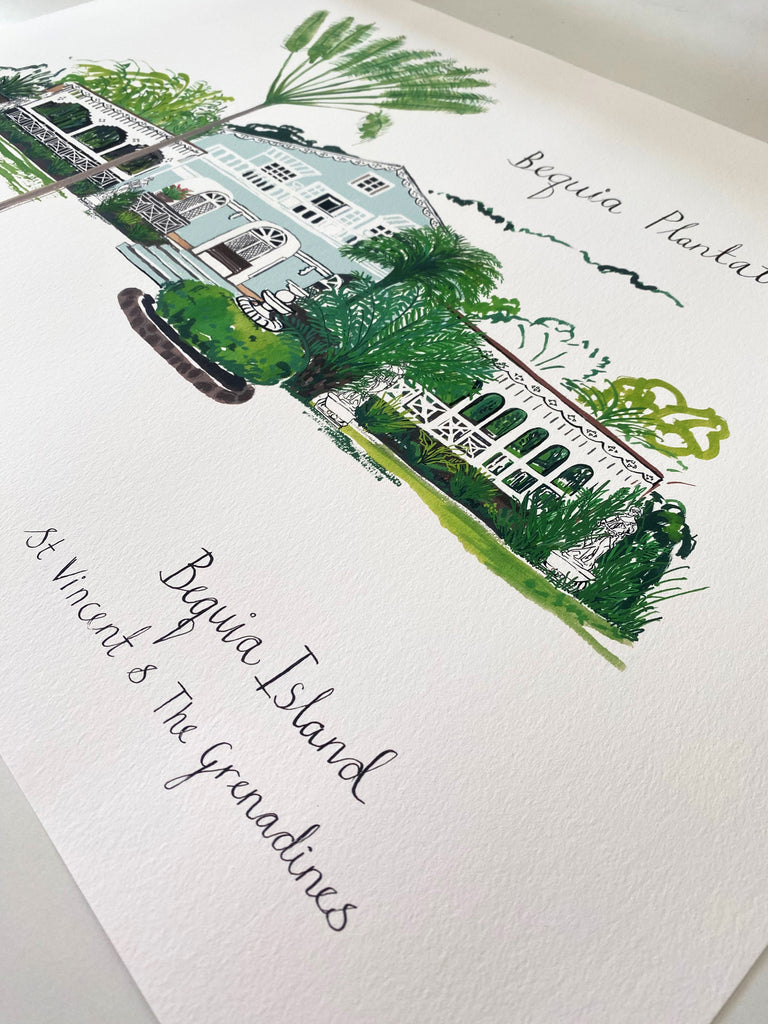 Bequia Plantat
Bequia Island
St Vincent & The Grenadines